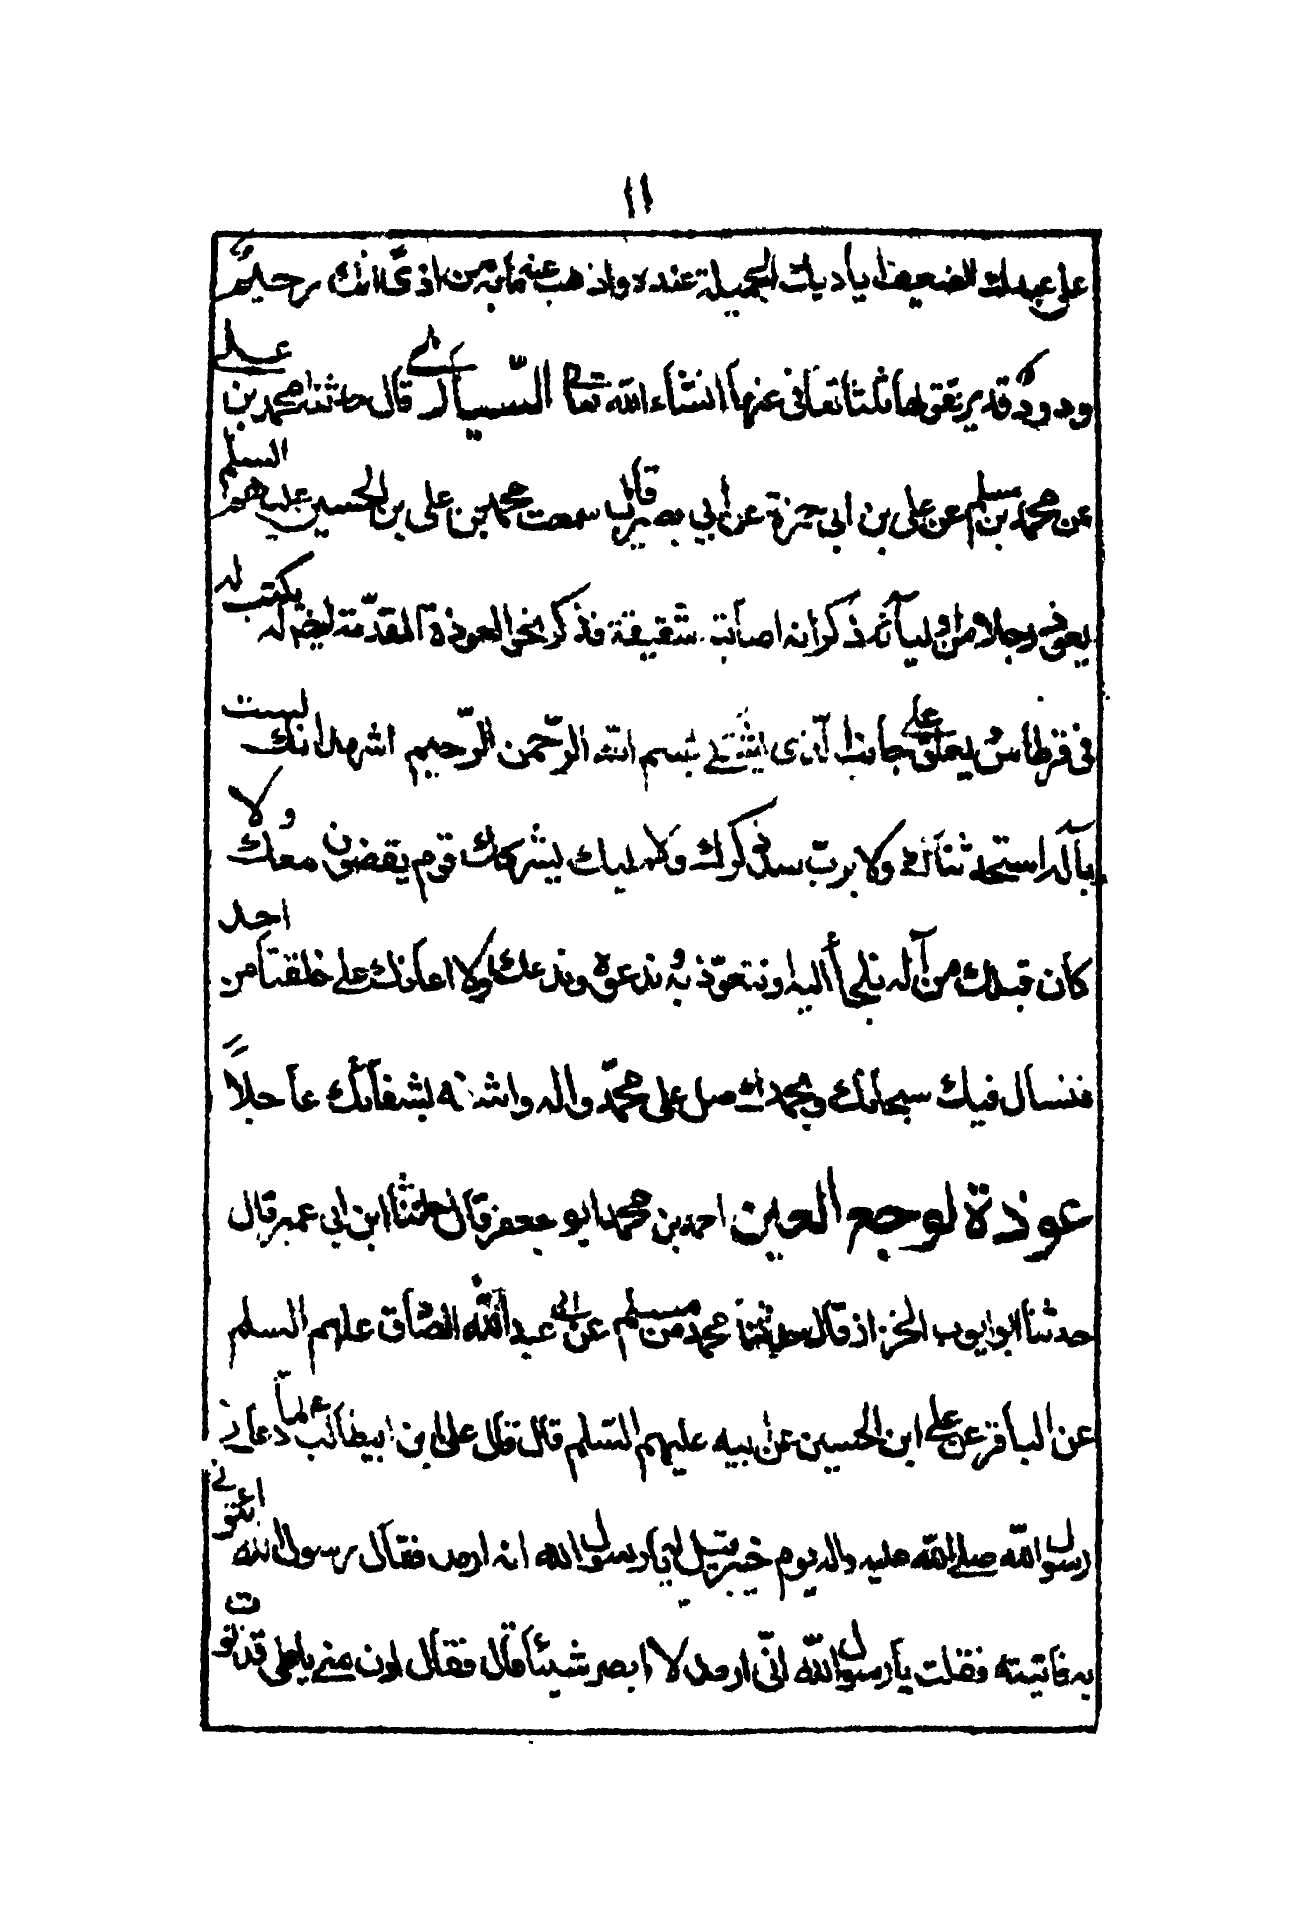 ١١
على عبدك الضعيف اياديك الجميلة عنده واذهب عنه ما به من اذى انك رحيم
ودود قدير تقولها ثلثا تعافى عنها انشاء الله تعا السيارى قال حدثنا محمد بن على
عن محمد بن مسلم عن على بن ابى حمزة عن ابى بصير قال سمعت محمد بن على بن الحسين عليهم السلم
يعوذ رجلا من اوليائه ذكر انه اصابته شقيقة فذكر نحو العوذة المقدمة ليضم له يكتب له
فى قرطاس يعلق على جانب الذى بسم الله الرحمن الرحيم اشهد انك لست
بآله استحدثناك ولا برب ولا مليك يشركك قوم يقضون معك ولا
كان قبلك من آله نلجأ اليه ونتعوذ به وندعوه وندعك ولا اعانك على خلقنا من احد
فنسال فيك سبحانك وبحمدك صل على محمد واله واشفه بشفائك عاجلا
عوذة لوجع العين احمد بن محمد ابو جعفر قال حدثنا ابن ابى عمير قال
حدثنا ابو ايوب الخزاز قال حدثنا محمد بن مسلم عن ابى عبد الله الصادق عليهم السلم
عن الباقر عن على ابن الحسين عن ابيه عليهم السلم قال قال على ابن ابيطالب لما دعانى
رسول الله صلى الله عليه واله يوم خيبر قيل له يا رسول الله انه ارمد فقال رسول الله ائتونى
به فاتيته فقلت يا رسول الله انى ارمد لا ابصر شيئا قال فقال ادن منى يا على فدنوت